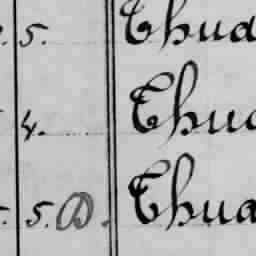 5. Thud
4. Thu
5. D. Thua